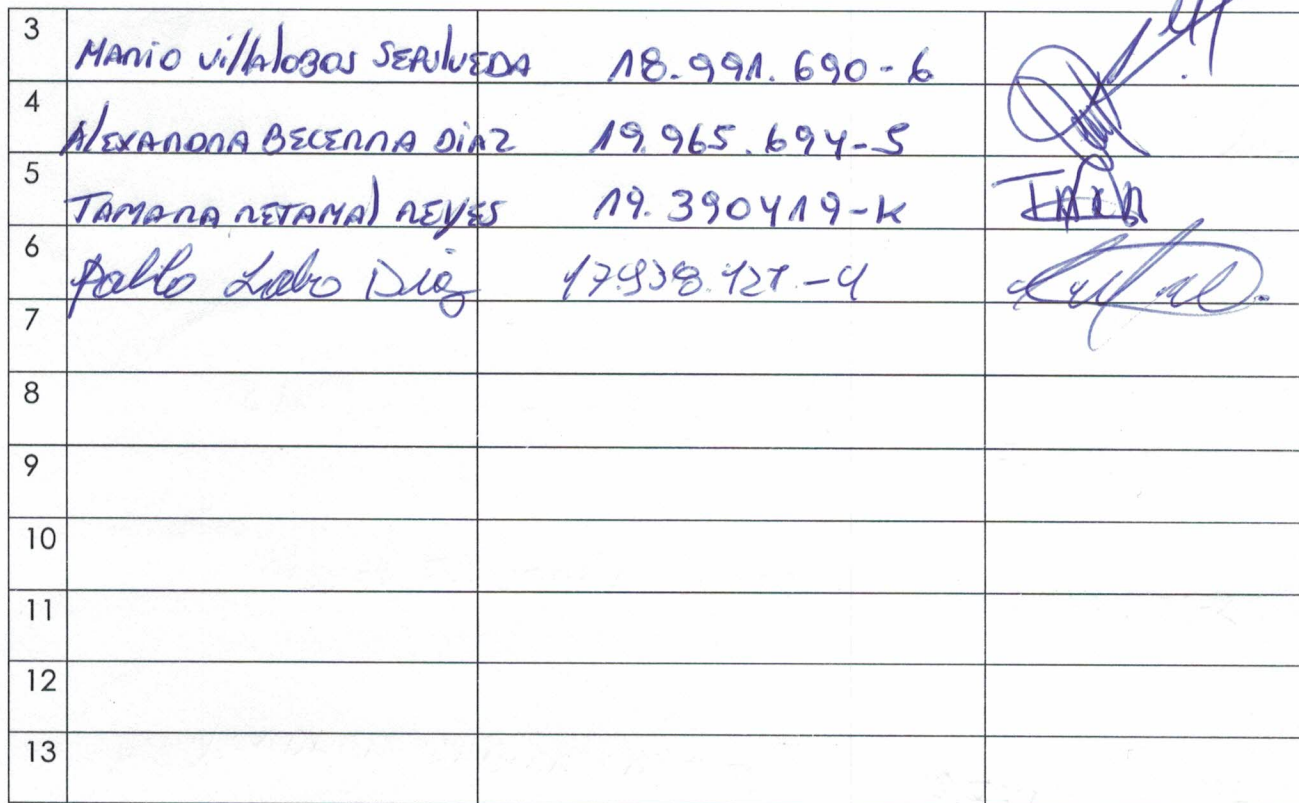 3 Mario Villalobos Sepulveda 18.991.690-6
4 Alexandra Becerra Diaz 19.965.694-5
5 Tamara Retamal Reyes 19.390419-K
6 Pablo Lobo Diaz
7
8
9
10
11
12
13